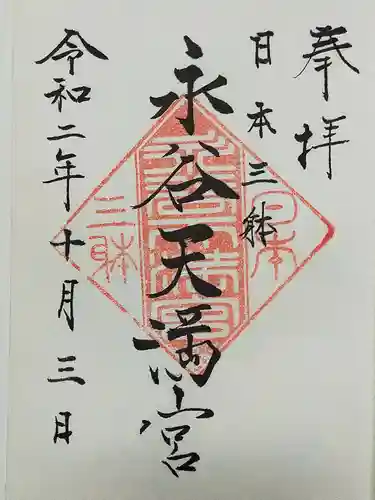 奉拝
日本三躰
永谷天満宮
令和二年十月三日
日本
三躰